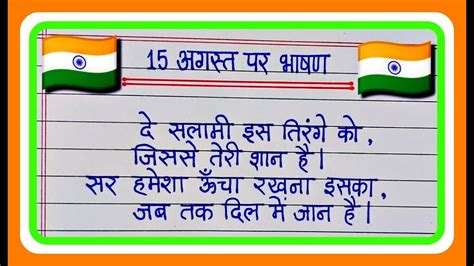 15 अगस्त पर भाषण
दे सलामी इस तिरंगे को,
जिससे तेरी शान है।
सर हमेशा ऊँचा रखना इसका,
जब तक दिल में जान है।